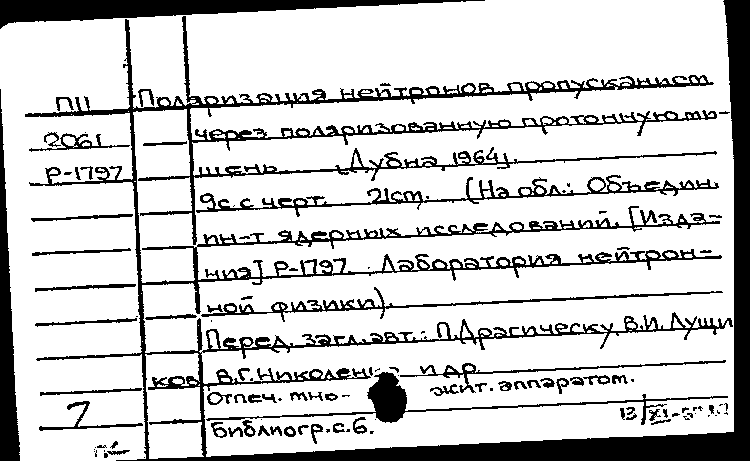 П11 Поляризация нейтронов пропусканием
2061 через поляризованную протонную ми-
Р-1797 шень. [Дубна, 1964].
9с. с черт. 21см. (На обл.: Объедин.
ин-т ядерных исследований. [Изда-
ния] Р-1797. Лаборатория нейтрон-
ной физики).
Перед. загл. авт.: П. Драгическу, В.И. Лущи
ков, В.Г. Николенко и др.
Отпеч. мно- жит. аппаратом.
7 Библиогр. с. 6.